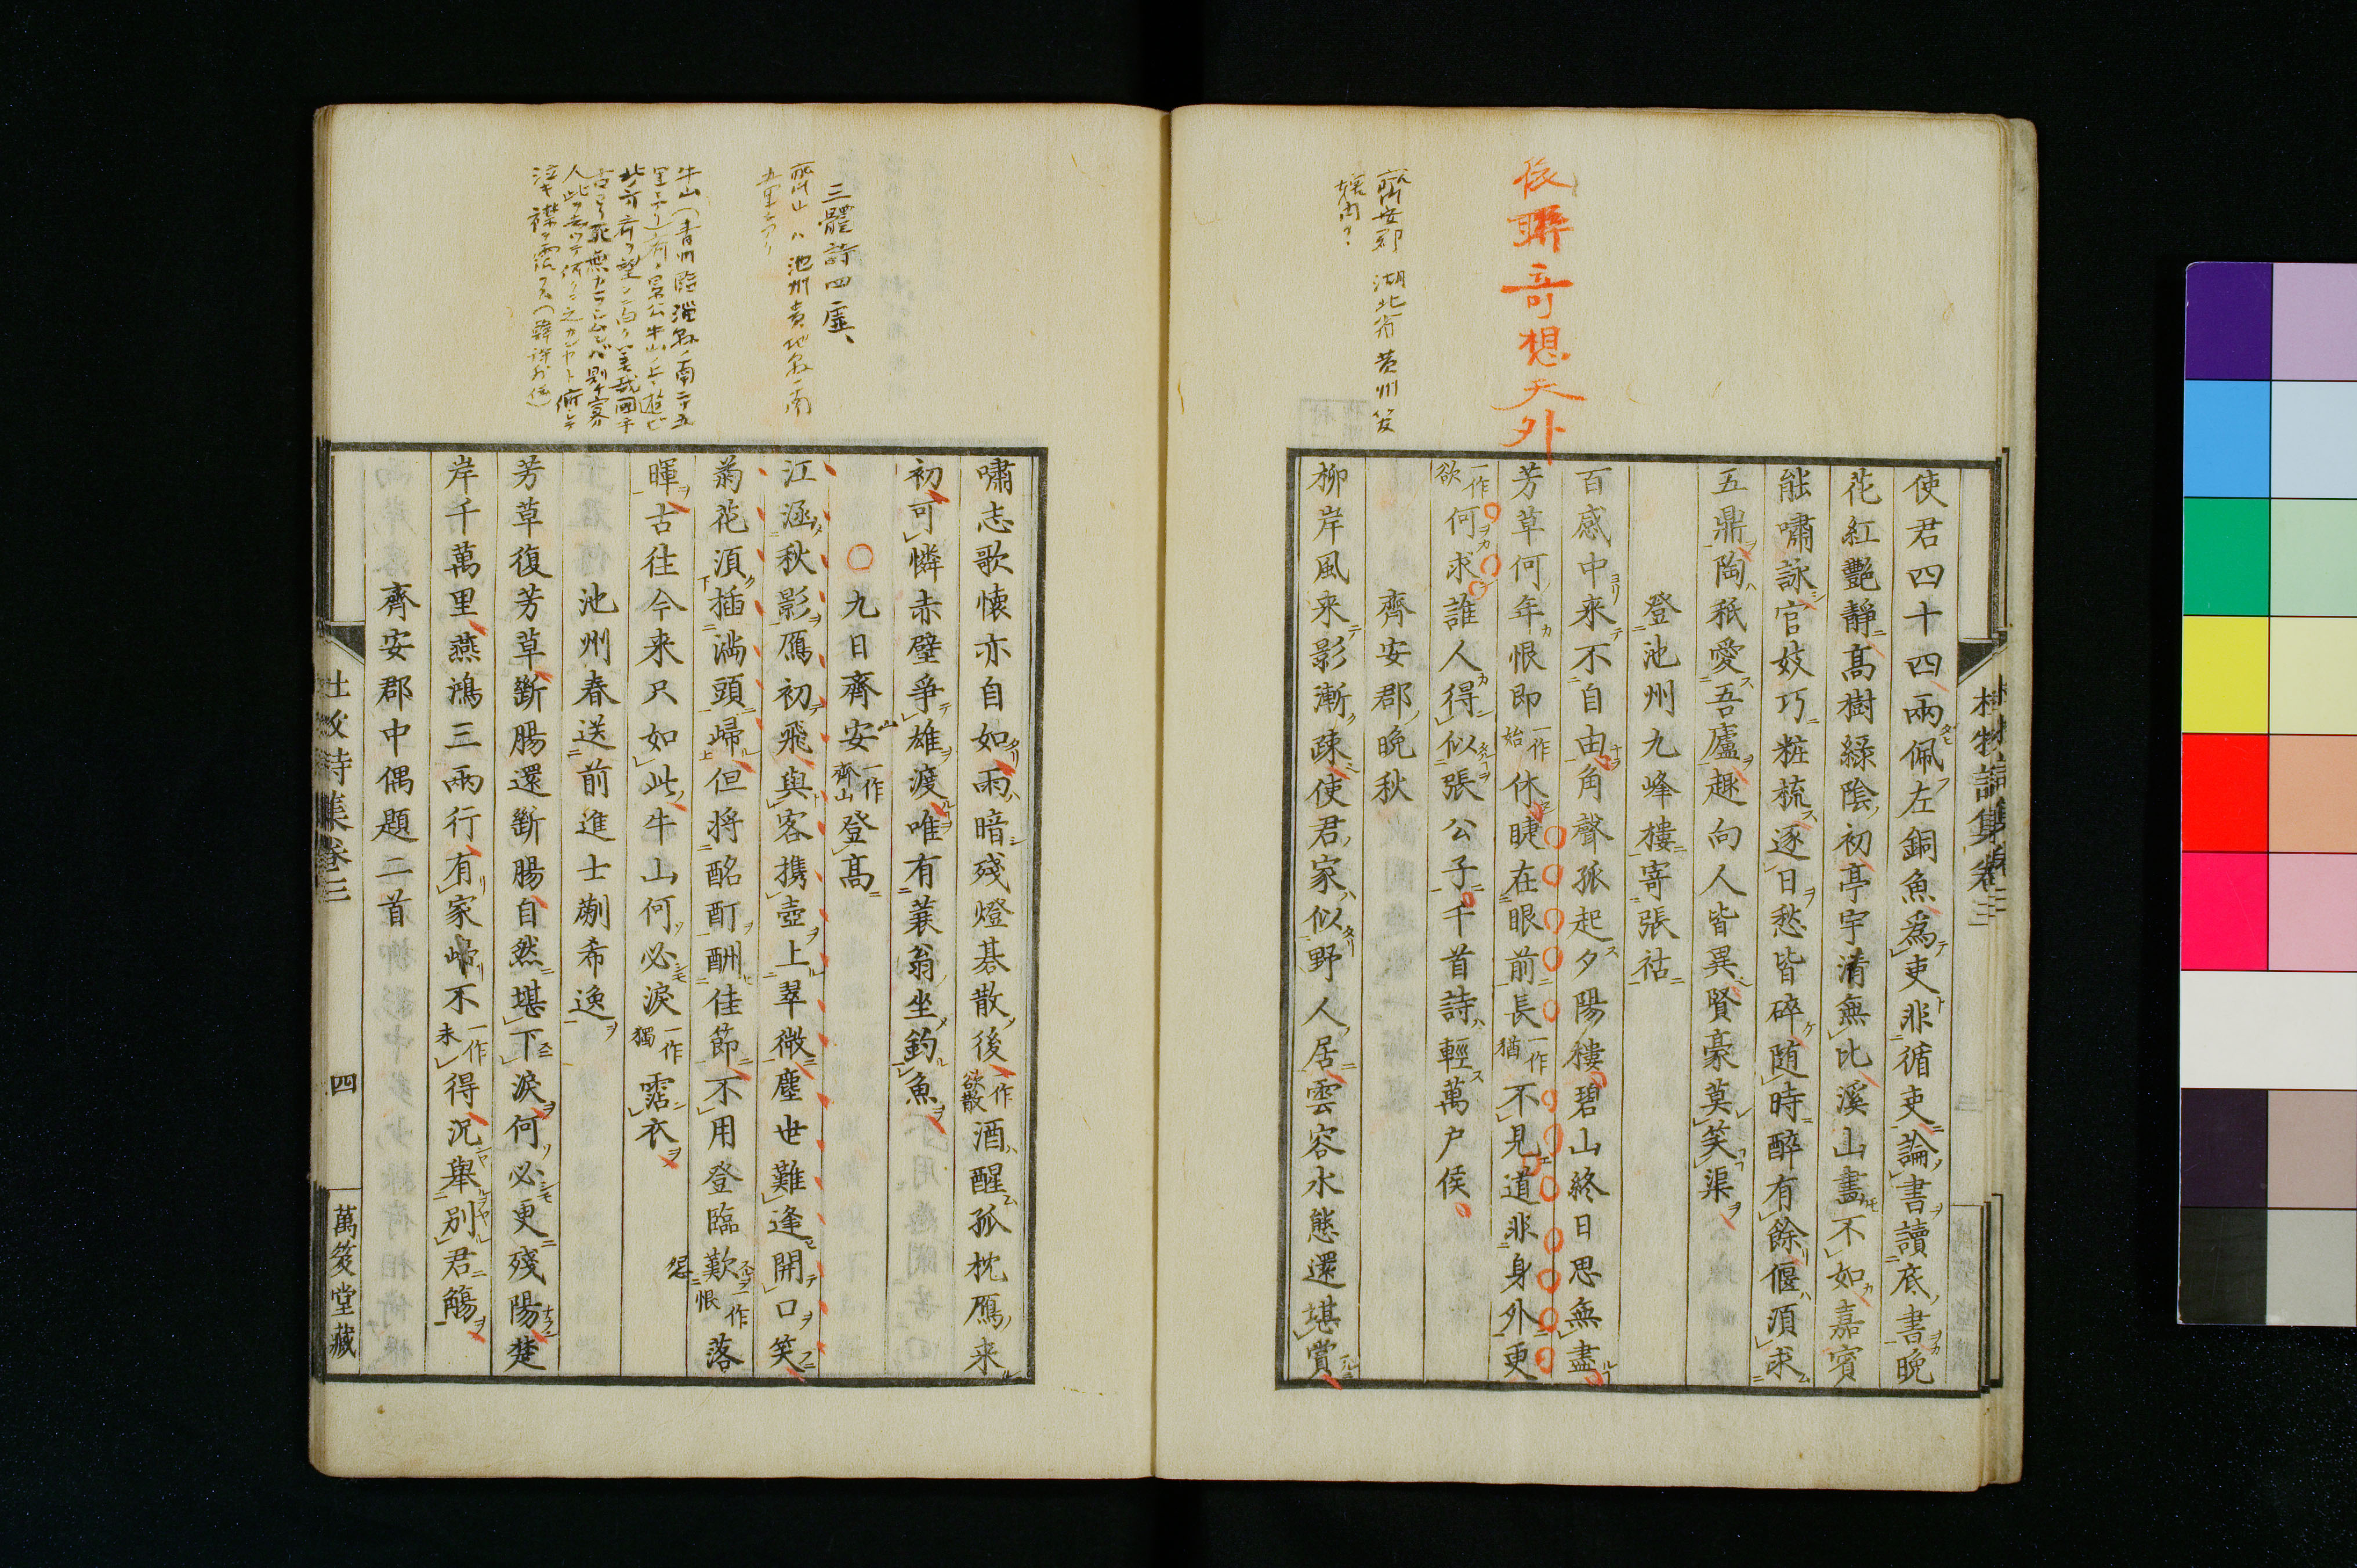 使君四十四兩佩左銅魚爲吏非循吏論書讀底書晩
花紅艶靜髙樹綠陰初亭宇清無比溪山畫不如嘉賓
能嘯詠官妓巧粧梳逐日愁皆碎随時醉有餘偃須求
五鼎陶秖愛吾廬趣向人皆異賢豪莫笑渠
登池州九峰樓寄張祜
百感中来不自由角聲孤起夕陽樓碧山終日思無盡
芳草何年恨即一作始休睫在眼前長一作猶不見道非身外更
一作欲何求誰人得似張公子千首詩輕萬户侯
齊安郡晩秋
柳岸風来影漸疎使君家似野人居雲容水態還堪賞
嘯志歌懐亦自如雨暗殘燈棊散後一作欲散酒醒孤枕鴈来
初可憐赤壁爭雄渡唯有蓑翁坐釣魚
九日齊安一作齊山登髙
江涵秋影鴈初飛與客携壺上翠微塵世難逢開口笑
菊花湏插滿頭歸但将酩酊酬佳節不用登臨歎一作恨怨落
暉古往今来只如此牛山何必淚一作獨霑衣
池州春送前進士蒯希逸
芳草復芳草斷腸還斷腸自然堪下淚何必更殘陽楚
岸千萬里燕鴻三兩行有家歸不一作未得况舉別君觴
齊安郡中偶題二首
杜牧詩集卷三
四
萬笈堂藏
杜牧詩集卷三
後聯奇想天外
齊安郡 湖北省黄州
三體詩四虚、
齊山ハ池州貴池縣ノ南
五里ニアリ